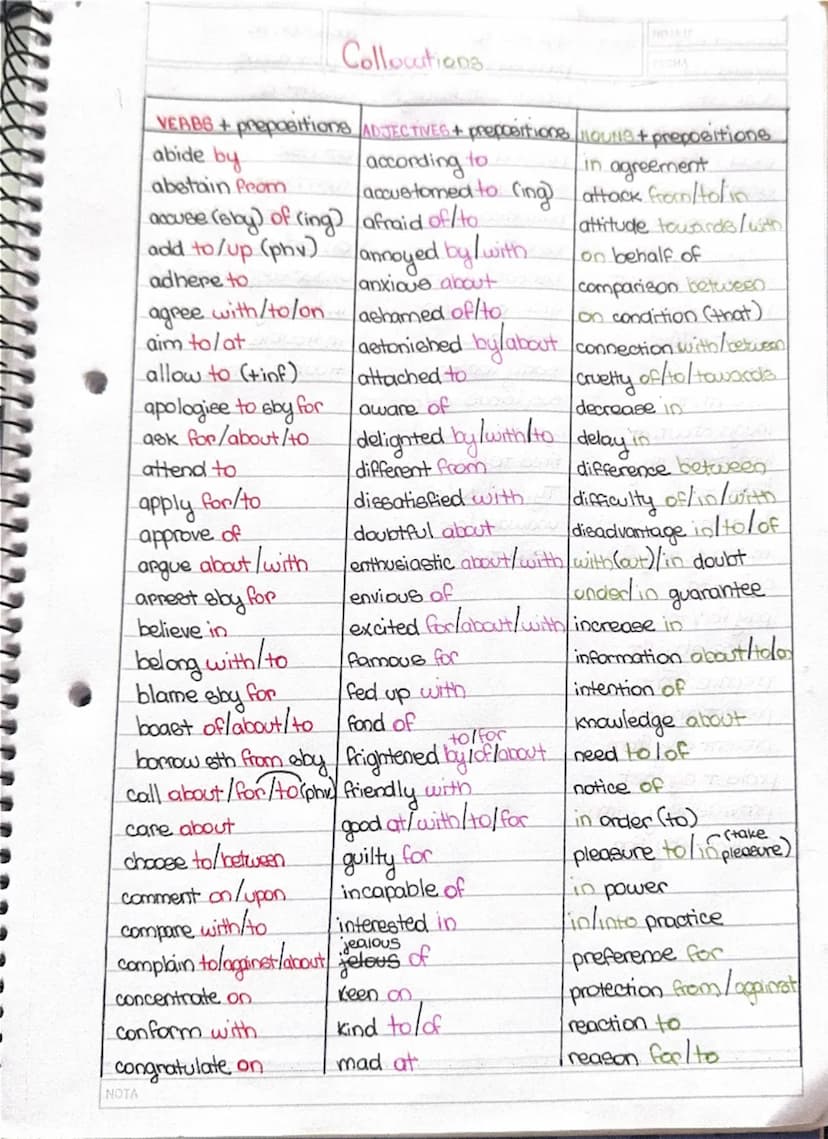 Collocations
VERBS + prepositions ADJECTIVES + prepositions NOUNS + prepositions
abide by according to in agreement
abstain from accustomed to (ing) attack from/to/in
accuse (sby) of (ing) afraid of/to attitude towards/with
add to/up (phv) annoyed by/with on behalf of
adhere to anxious about comparison between
agree with/to/on ashamed of/to on condition (that)
aim to/at astonished by/about connection with/between
allow to (+inf) attached to cruelty of/to/towards
apologise to sby for aware of decrease in
ask for/about/to delighted by/with/to delay in
attend to different from difference between
apply for/to dissatisfied with difficulty of/in/with
approve of doubtful about disadvantage in/to/of
argue about/with enthusiastic about/with with(out)/in doubt
arrest sby for envious of under/in guarantee
believe in excited for/about/with increase in
belong with/to famous for information about/to/on
blame sby for fed up with intention of
boast of/about/to fond of knowledge about
to/for
borrow sth from sby frightened by/of/about need to/of
call about/for/to (phv) friendly with notice of
care about good at/with/to/for in order (to)
choose to/between guilty for pleasure to/in (take pleasure)
comment on/upon incapable of in power
compare with/to interested in in/into practice
jealous
complain to/against/about jelous of preference for
concentrate on keen on protection from/against
conform with kind to/of reaction to
congratulate on mad at reason for/to
NOTA